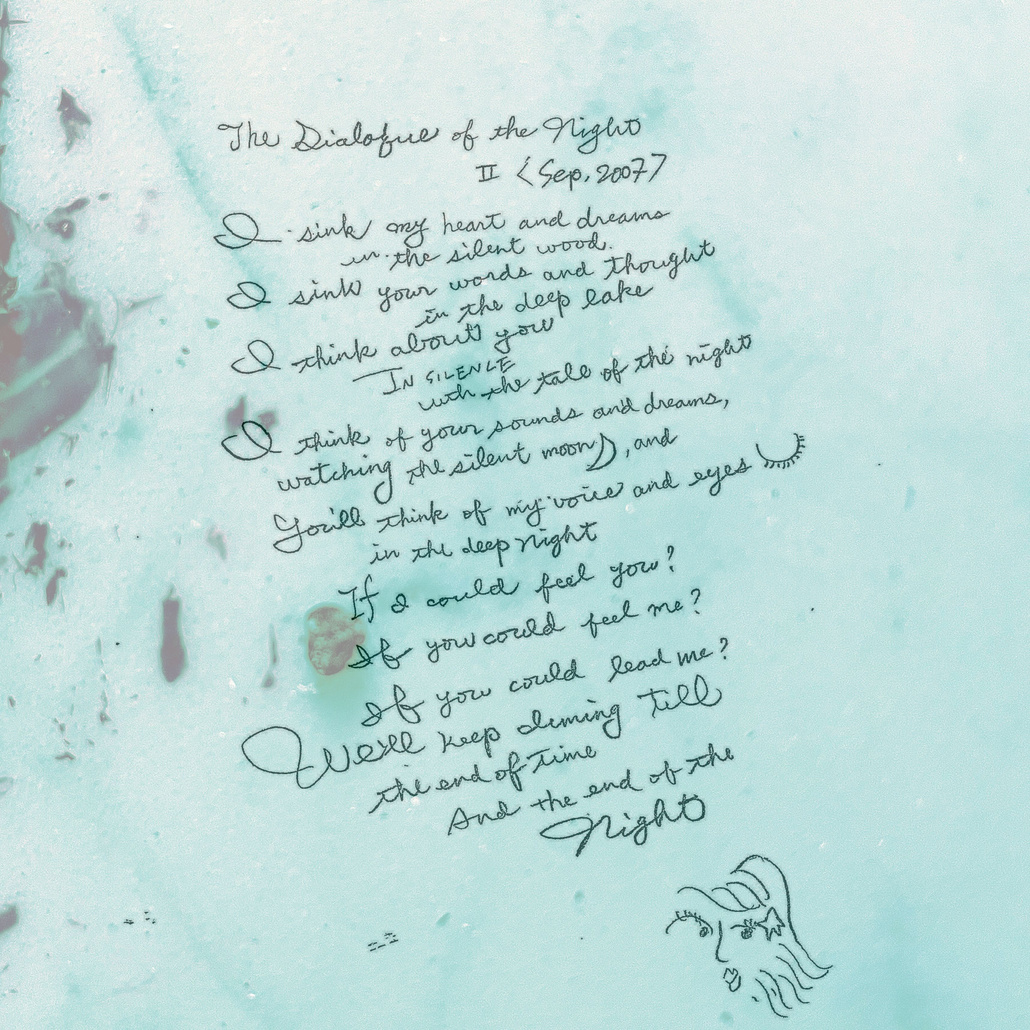 The Dialogue of the Night
II <Sep, 2007>
I sink my heart and dreams
in the silent wood.
I sink your words and thought
in the deep lake
I think about you
IN SILENCE
with the tale of the night
I think of your sounds and dreams,
watching the silent moon, and
You'll think of my voice and eyes
in the deep night
If I could feel you?
If you could feel me?
If you could lead me?
We'll keep diming till
the end of time
And the end of the
Night